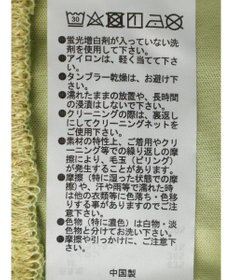 30
●蛍光増白剤が入っていない洗
剤を使用して下さい。
●アイロンは、軽く当てて下さ
い。
●タンブラー乾燥は、お避け下
さい。
●濡れたままの放置や、長時間
の浸漬はしないで下さい。
●クリーニングの際は、裏返
しにしてクリーニングネットを
ご使用下さい。
●素材の特性上、ご着用やクリ
ーニング等での繰り返しの摩
擦により、毛玉（ピリング）が
発生することがあります。
●摩擦（特に湿った状態での摩
擦）や、汗や雨等で濡れた時
は他の衣類等に色落ち・色移
りする事がありますのでご注
意下さい。
●色物（特に濃色）は白物・淡
色物と分けてお洗い下さい。
●摩擦や引っかけに、ご注意下
さい。
中国製